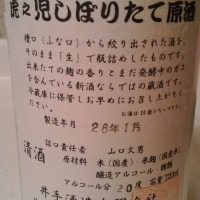 虎之児しぼりたて原酒
槽口(ふな口)から絞り出された酒を、
そのまま「生」で瓶詰めしたものです。
出来たての麹の香りとまだ発酵中のガス
を含んでいる新酒ならではの蔵酒です。
冷蔵庫に保管しお早めにお召し上がり
ください。
お酒は20歳になってから
製造年月 28年1月
詰口責任者 山口文男
清酒 原材料 米(国産)・米麹(国産米)
醸造アルコール・糖類
アルコール分 20度 容量720ml
井手酒造有限会社